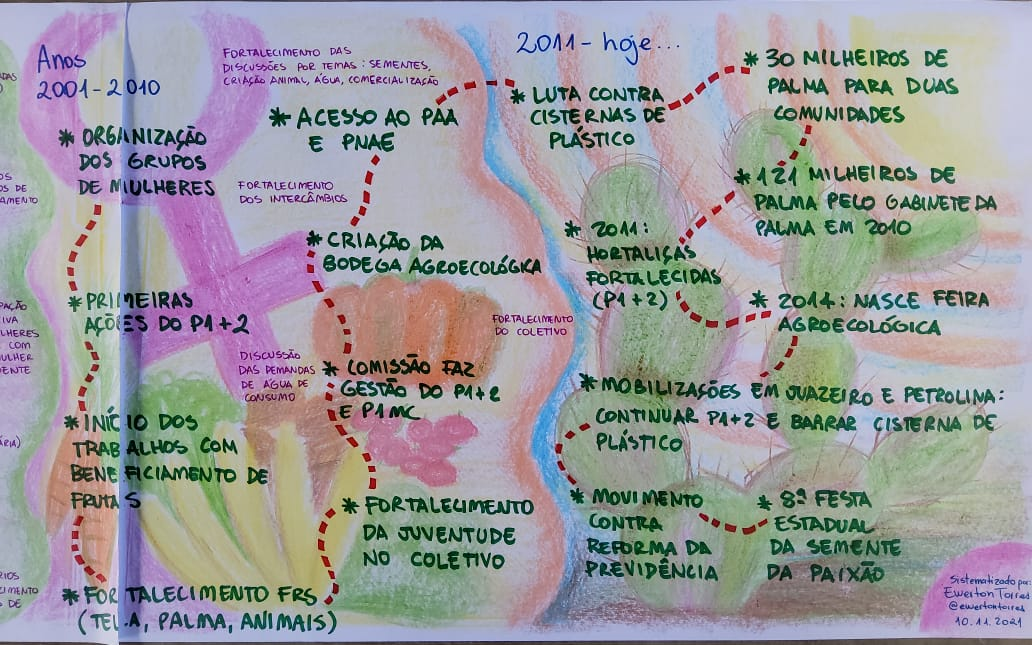 Anos
2001-2010
* ORGANIZAÇÃO
DOS GRUPOS
DE MULHERES
* PRIMEIRAS
AÇÕES DO P1+2
* INÍCIO DOS
TRABALHOS COM
BENEFICIAMENTO DE
FRUTAS
* FORTALECIMENTO FRS
(TELA, PALMA, ANIMAIS)
FORTALECIMENTO DAS
DISCUSSÕES POR TEMAS: SEMENTES,
CRIAÇÃO ANIMAL, ÁGUA, COMERCIALIZAÇÃO
* ACESSO AO PAA
E PNAE
FORTALECIMENTO
DOS INTERCÂMBIOS
* CRIAÇÃO DA
BODEGA AGROECOLÓGICA
FORTALECIMENTO
DO COLETIVO
DISCUSSÃO
DAS DEMANDAS
DE ÁGUA DE
CONSUMO
* COMISSÃO FAZ
GESTÃO DO P1+2
E P1MC
* FORTALECIMENTO
DA JUVENTUDE
NO COLETIVO
2011-hoje...
* LUTA CONTRA
CISTERNAS DE
PLÁSTICO
* 30 MILHEIROS DE
PALMA PARA DUAS
COMUNIDADES
* 121 MILHEIROS DE
PALMA PELO GABINETE DA
PALMA EM 2010
* 2011:
HORTALIÇAS
FORTALECIDAS
(P1+2)
* 2014: NASCE FEIRA
AGROECOLÓGICA
* MOBILIZAÇÕES EM JUAZEIRO E PETROLINA:
CONTINUAR P1+2 E BARRAR CISTERNA DE
PLÁSTICO
* MOVIMENTO
CONTRA
REFORMA DA
PREVIDÊNCIA
* 8ª FESTA
ESTADUAL
DA SEMENTE
DA PAIXÃO
Sistematizado por:
Ewerton Torres
@ewertontorres
10.11.2021